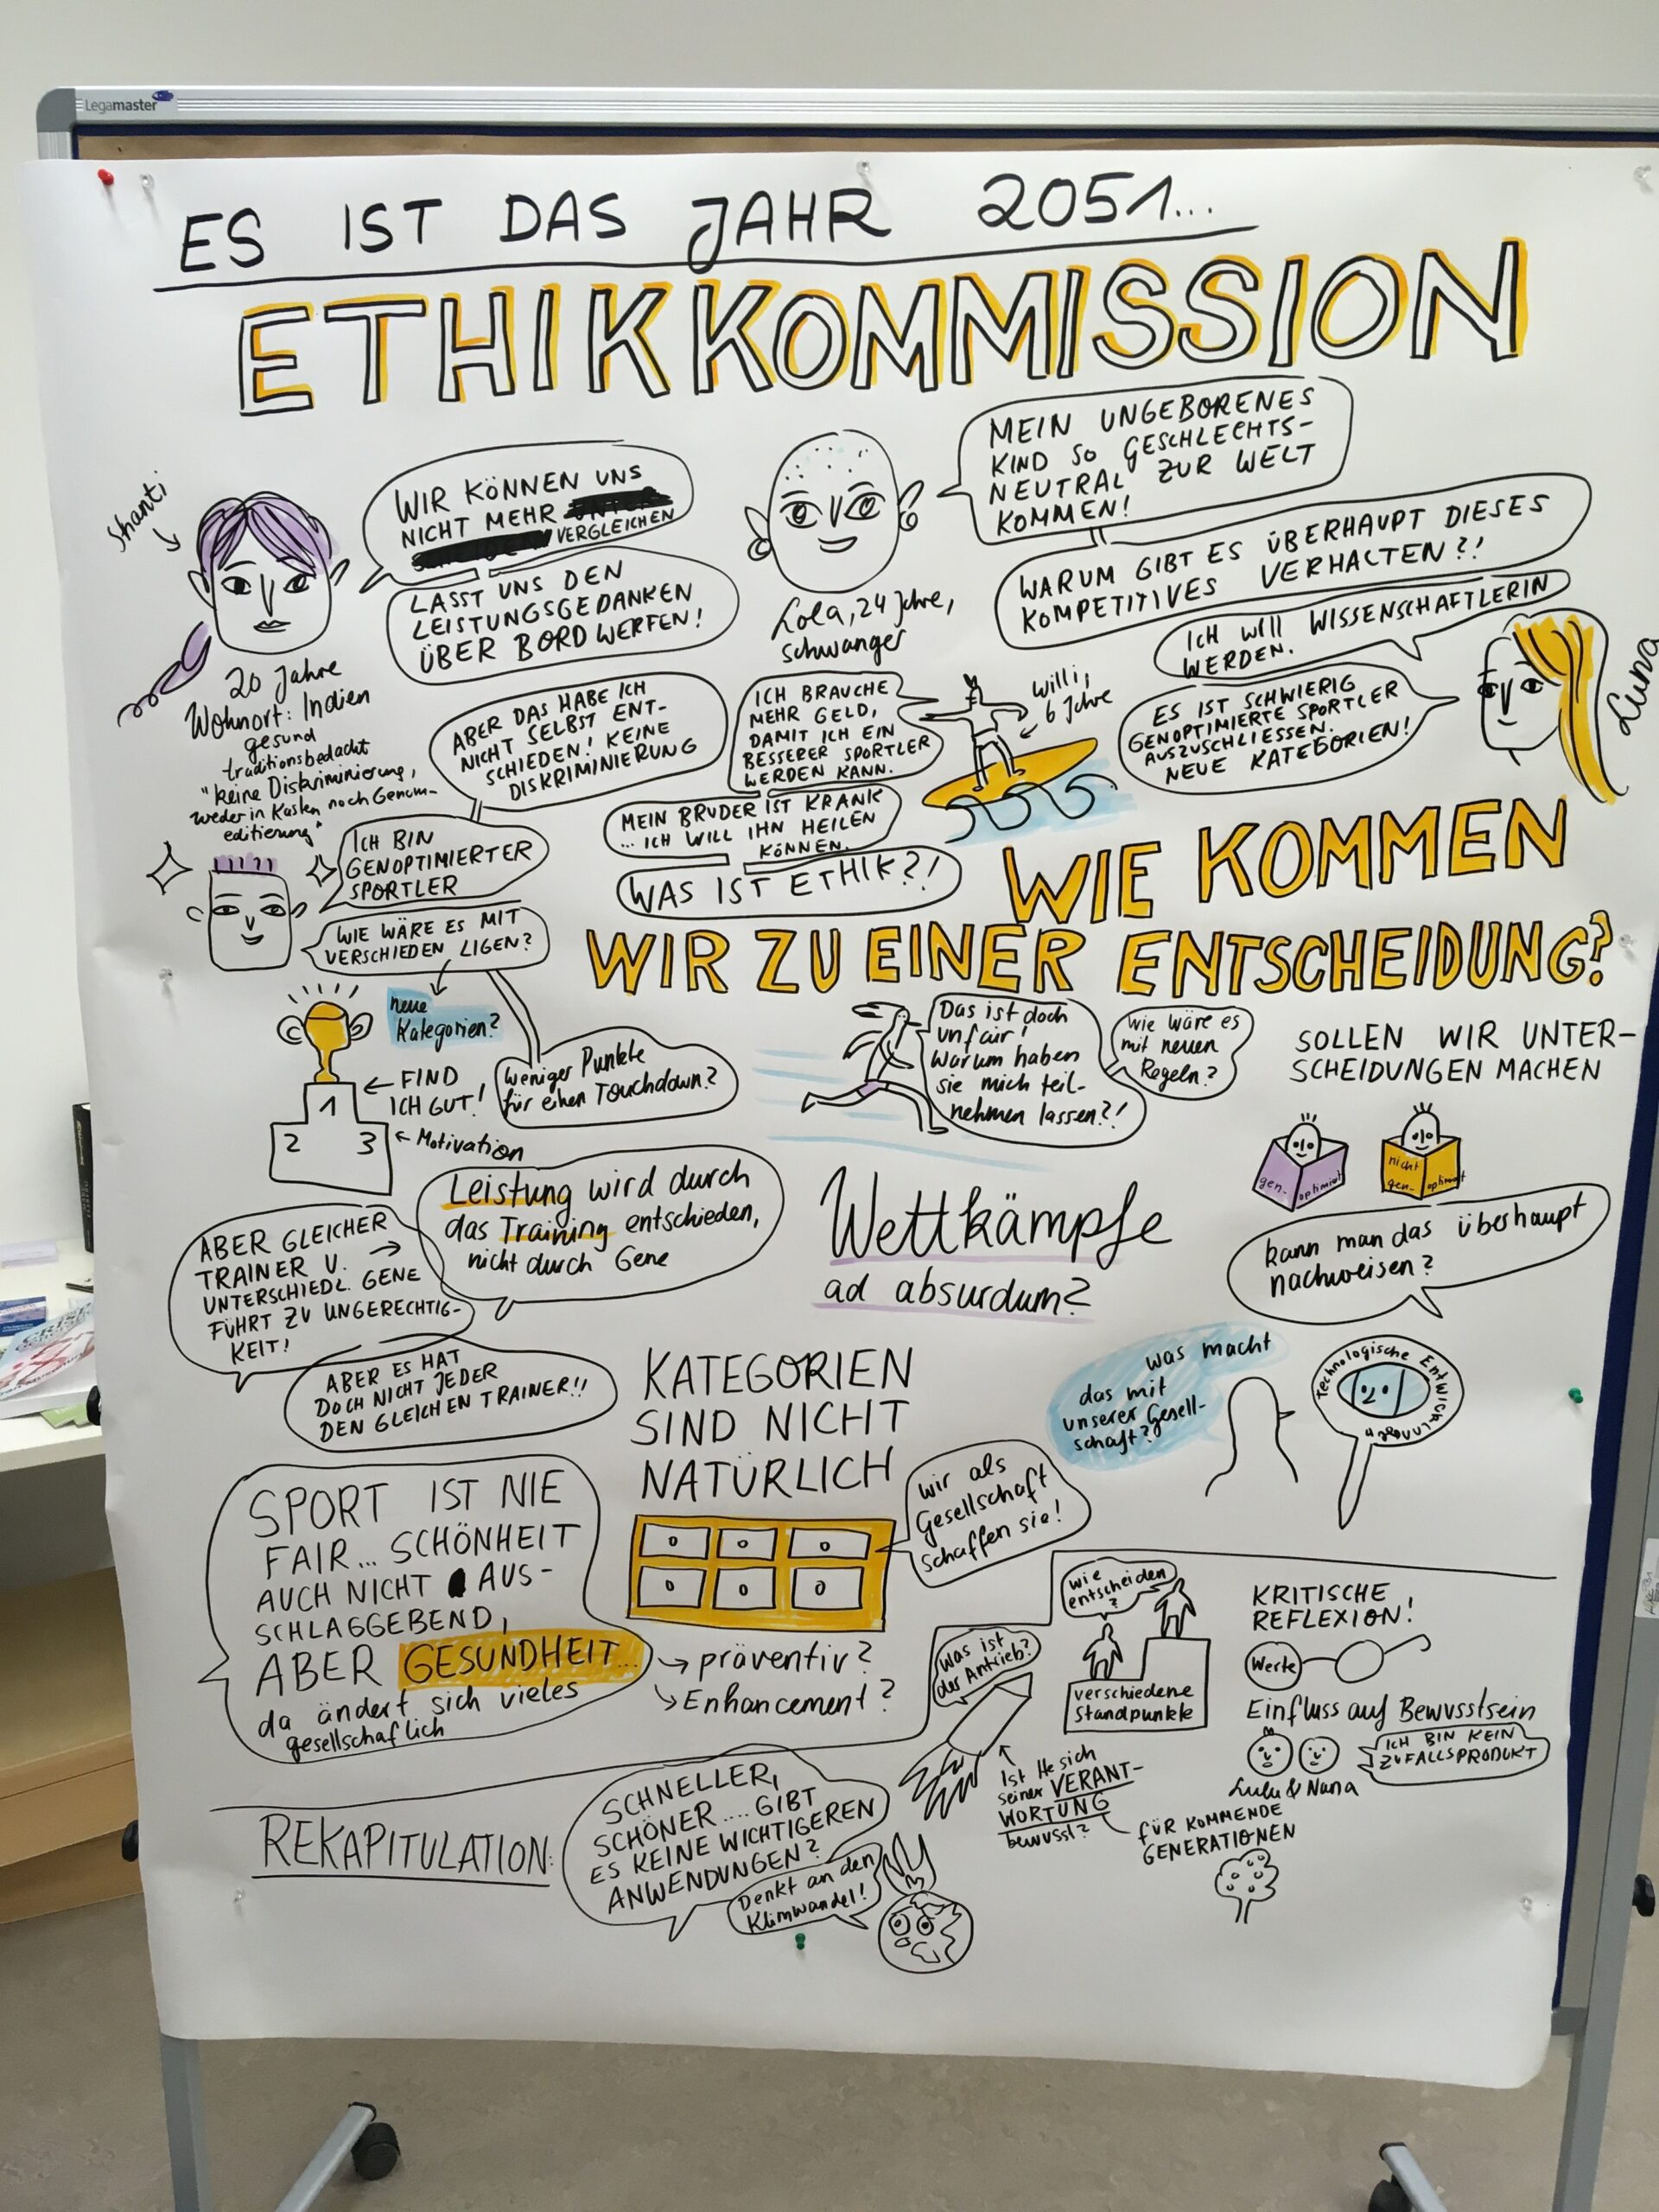 Legamaster
ES IST DAS JAHR 2051...
ETHIKKOMMISSION
Shanti
WIR KÖNNEN UNS
NICHT MEHR
VERGLEICHEN
LASST UNS DEN
LEISTUNGSGEDANKEN
ÜBER BORD WERFEN!
20 Jahre
Wohnort: Indien
gesund
traditionsbedacht
"keine Diskriminierung,
weder in Kasten noch Genom-
editierung"
MEIN UNGEBORENES
KIND SO GESCHLECHTS-
NEUTRAL ZUR WELT
KOMMEN!
WARUM GIBT ES ÜBERHAUPT DIESES
KOMPETITIVES VERHALTEN?!
Lola, 24 Jahre,
schwanger
ICH WILL WISSENSCHAFTLERIN
WERDEN.
ES IST SCHWIERIG
GENOPTIMIERTE SPORTLER
AUSZUSCHLIESSEN.
NEUE KATEGORIEN!
Luna
ABER DAS HABE ICH
NICHT SELBST ENT-
SCHIEDEN! KEINE
DISKRIMINIERUNG
ICH BIN
GENOPTIMIERTER
SPORTLER
WIE WÄRE ES MIT
VERSCHIEDEN LIGEN?
ICH BRAUCHE
MEHR GELD,
DAMIT ICH EIN
BESSERER SPORTLER
WERDEN KANN.
Willi,
6 Jahre
MEIN BRUDER IST KRANK
... ICH WILL IHN HEILEN
KÖNNEN.
WAS IST ETHIK?!
WIE KOMMEN
WIR ZU EINER ENTSCHEIDUNG?
neue
Kategorien?
weniger Punkte
für einen Touchdown?
1
2 3
← FIND
ICH GUT!
← Motivation
Das ist doch
unfair!
Warum haben
sie mich teil-
nehmen lassen?!
wie wäre es
mit neuen
Regeln?
SOLLEN WIR UNTER-
SCHEIDUNGEN MACHEN
gen- optimiert
nicht
gen- optimiert
kann man das überhaupt
nachweisen?
Leistung wird durch
das Training entschieden,
nicht durch Gene
ABER GLEICHER
TRAINER U. →
UNTERSCHIEDL. GENE
FÜHRT ZU UNGERECHTIG-
KEIT!
ABER ES HAT
DOCH NICHT JEDER
DEN GLEICHEN TRAINER!!
Wettkämpfe
ad absurdum?
was macht
das mit
unserer Gesell-
schaft?
Technologische Entwicklungen
KATEGORIEN
SIND NICHT
NATÜRLICH
wir als
Gesellschaft
schaffen sie!
SPORT IST NIE
FAIR... SCHÖNHEIT
AUCH NICHT AUS-
SCHLAGGEBEND,
ABER GESUNDHEIT...
da ändert sich vieles
gesellschaflich
→ präventiv?
→ Enhancement?
REKAPITULATION:
SCHNELLER,
SCHÖNER.... GIBT
ES KEINE WICHTIGEREN
ANWENDUNGEN?
Denkt an den
Klimwandel!
was ist
der Antrieb?
wie
entscheiden
?
verschiedene
Standpunkte
Ist He sich
seiner VERANT-
WORTUNG
bewusst?
FÜR KOMMENDE
GENERATIONEN
KRITISCHE
REFLEXION!
Werte
Einfluss auf Bewusstsein
ICH BIN KEIN
ZUFALLSPRODUKT
Lulu & Nana